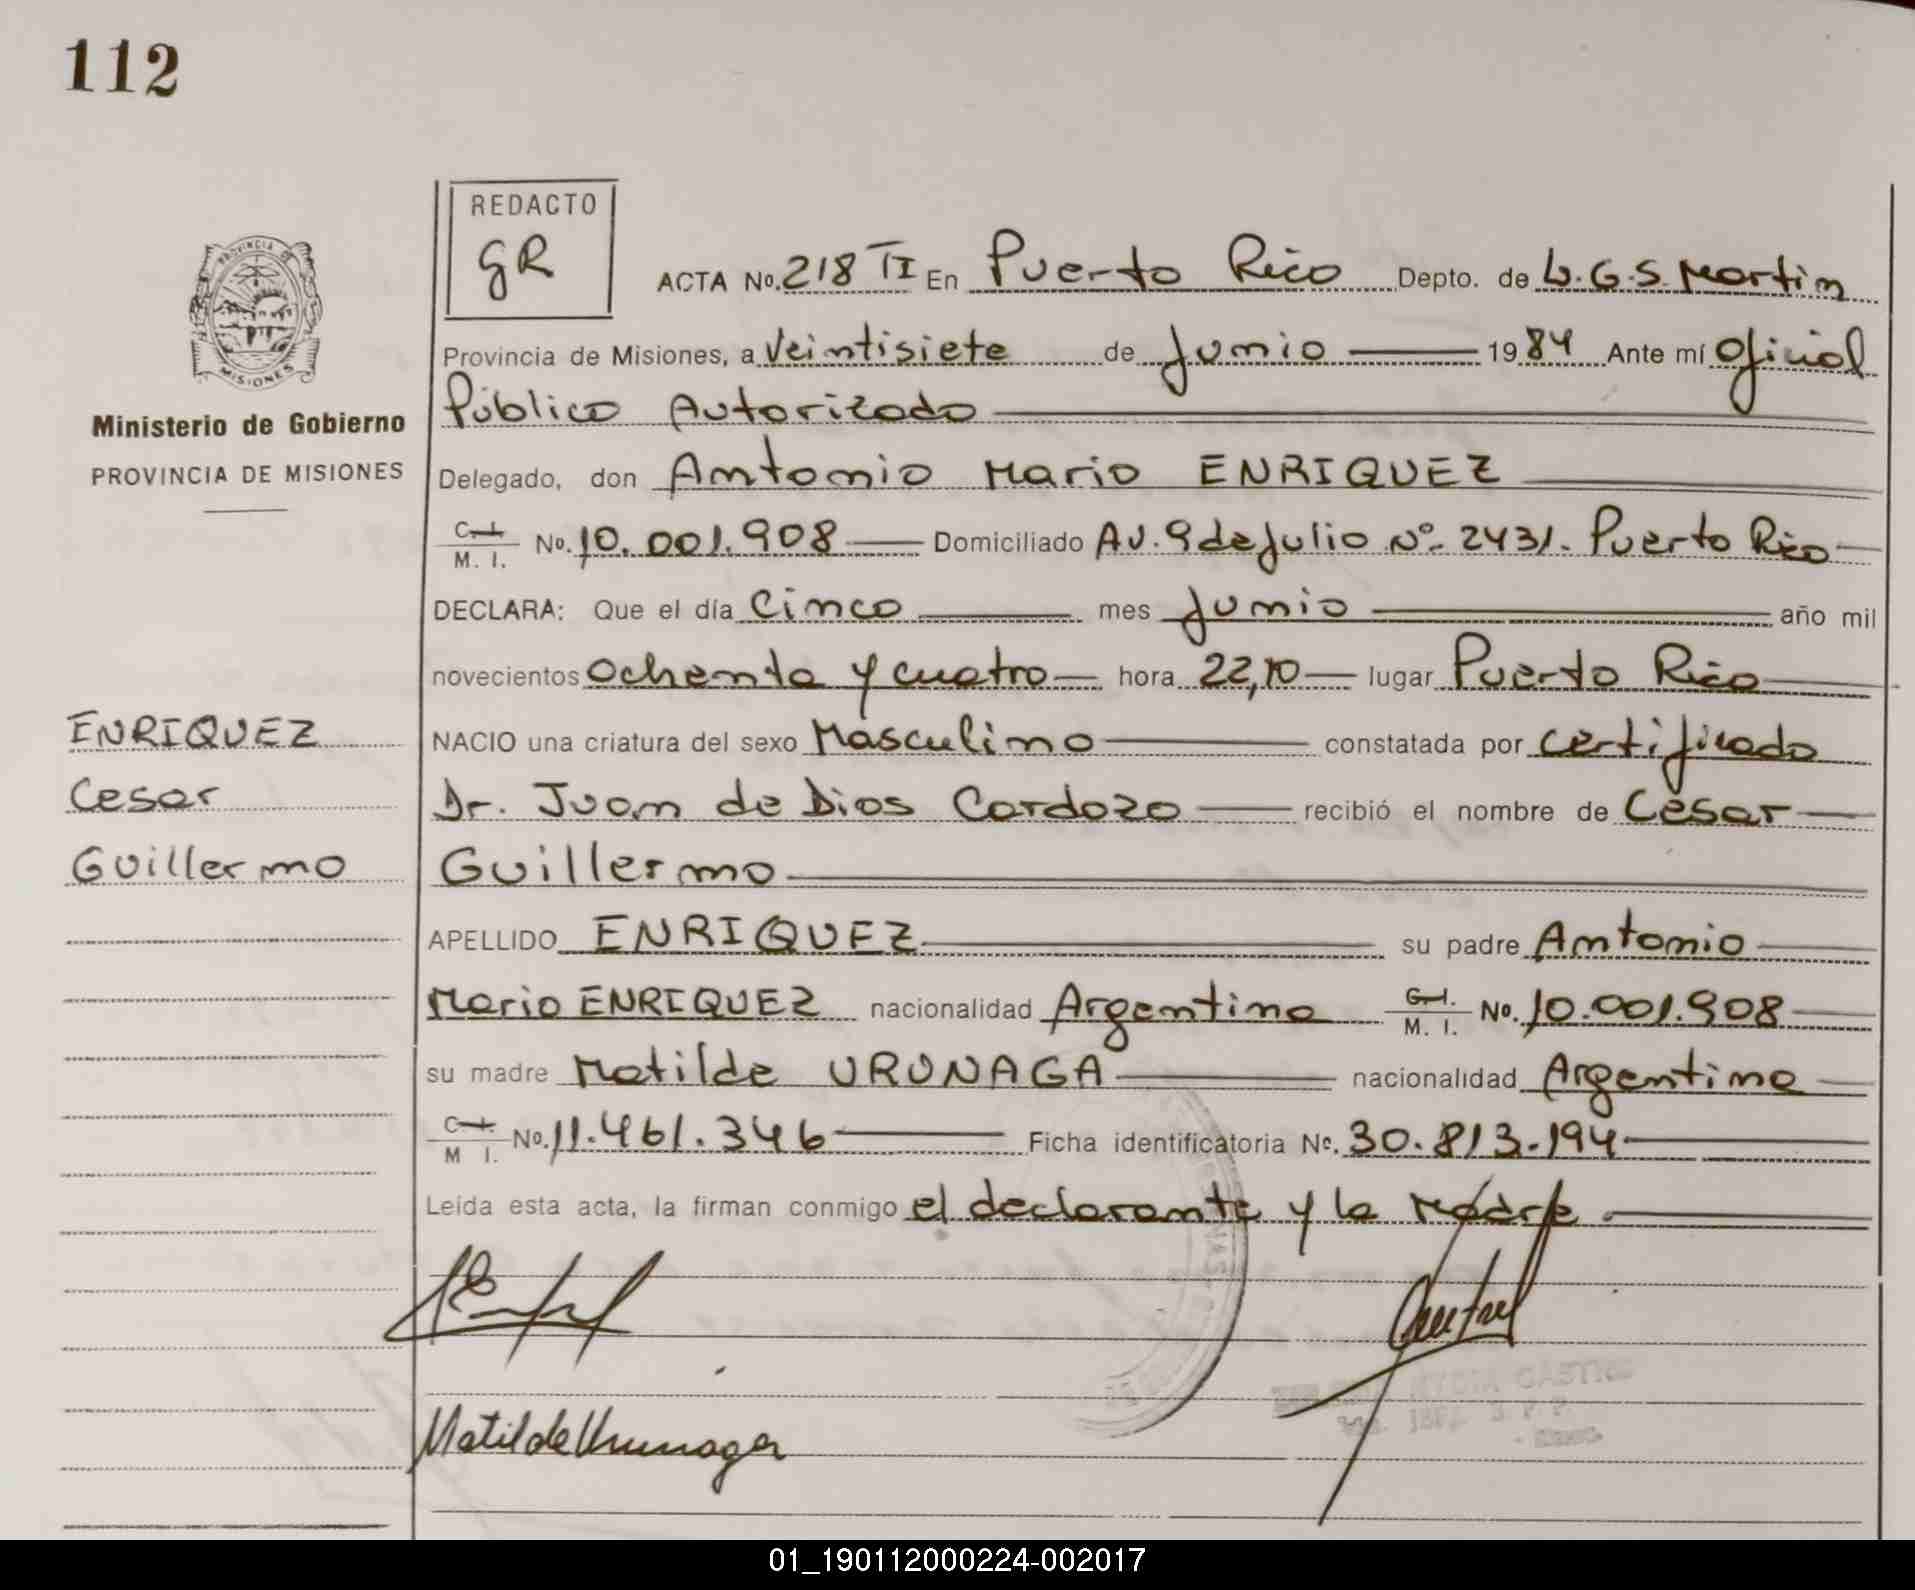 112
REDACTO
GR
PROVINCIA DE
MISIONES
Ministerio de Gobierno
PROVINCIA DE MISIONES
ACTA No. 218 TI En Puerto Rico Depto. de L.G.S. Martin
Provincia de Misiones, a Veintisiete de Junio 1984 Ante mí Oficial
Público Autorizado
Delegado, don Antonio Mario ENRIQUEZ
C. I. M. I. No. 10.001.908 Domiciliado Av. 9 de Julio Nº 2431. Puerto Rico
DECLARA: Que el día Cinco mes Junio año mil
novecientos Ochenta y cuatro hora 22,10 lugar Puerto Rico
ENRIQUEZ NACIO una criatura del sexo Masculino constatada por certificado
Cesar Dr. Juan de Dios Cardozo recibió el nombre de Cesar
Guillermo Guillermo
APELLIDO ENRIQUEZ su padre Antonio
Mario ENRIQUEZ nacionalidad Argentina C. I. M. I. No. 10.001.908
su madre Matilde URUNAGA nacionalidad Argentina
C. I. M I. No. 11.461.346 Ficha identificatoria No. 30.813.194
Leida esta acta, la firman conmigo el declarante y la Madre.
Matilde Urunaga
01_190112000224-002017